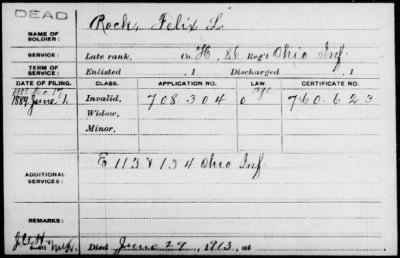 DEAD
NAME OF SOLDIER: Rock, Felix L.
SERVICE: Late rank, Co. H, 86 Reg't Ohio Inf.
TERM OF SERVICE: Enlisted , 1 Discharged , 1
DATE OF FILING. CLASS. APPLICATION NO. LAW. CERTIFICATE NO.
1889 June 1. Invalid, 708304 760.623
Widow,
Minor,
ADDITIONAL SERVICES: E 113 & 134 Ohio Inf
REMARKS:
Died June 27, 1913, at